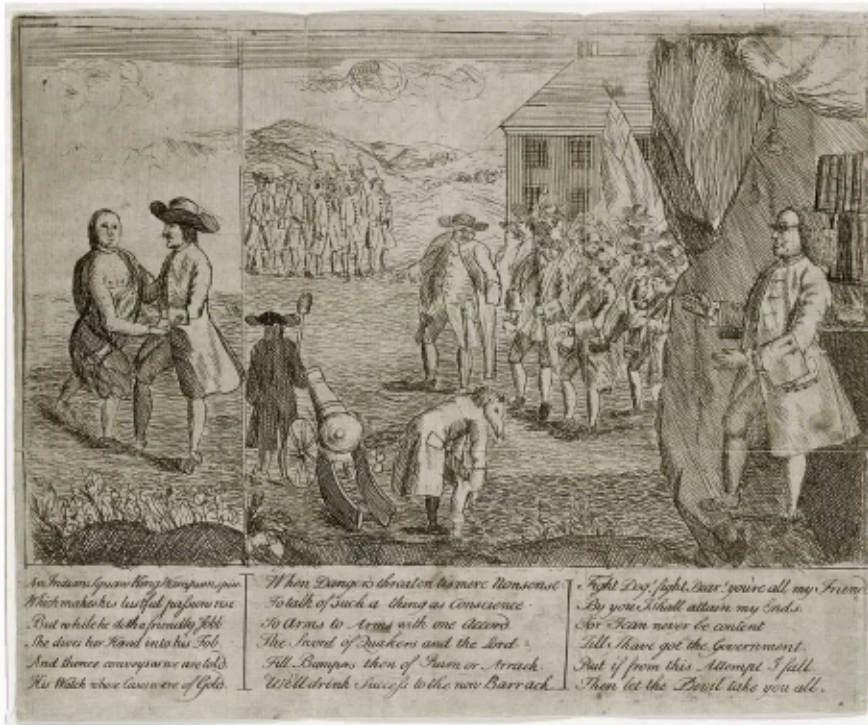 An Indian Squaw King Wampum spies
Which makes his lustful passions rise
But while he doth a friendly Jobb
She dives her Hand into his Fob
And thence conveys as we are told
His Watch whose Cases were of Gold.
When Dangers threaten tis mere Nonsense
To talk of such a thing as Conscience
To Arms to Arms with one Accord
The Sword of Quakers and the Lord
Fill Bumpers then of Rum or Arrack
We'll drink Success to the new Barrack
Fight Dog! fight Bear! you're all my Friends
By you I shall attain my Ends.
For I can never be content
Till I have got the Government.
But if from this Attempt I fall
Then let the Devil take you all.